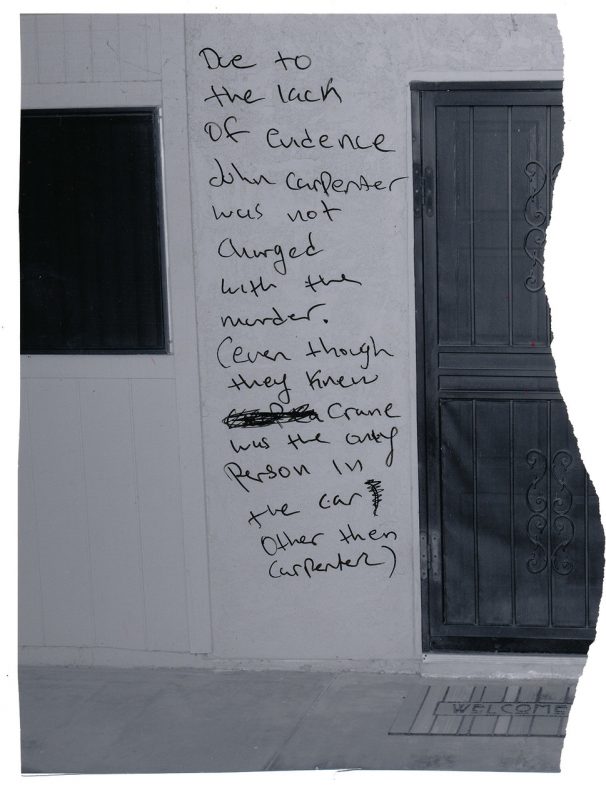 Due to
the lack
of evidence
John Carpenter
was not
charged
with the
murder.
(even though
they knew
Crane
was the only
person in
the car
other then
Carpenter)
WELCOME